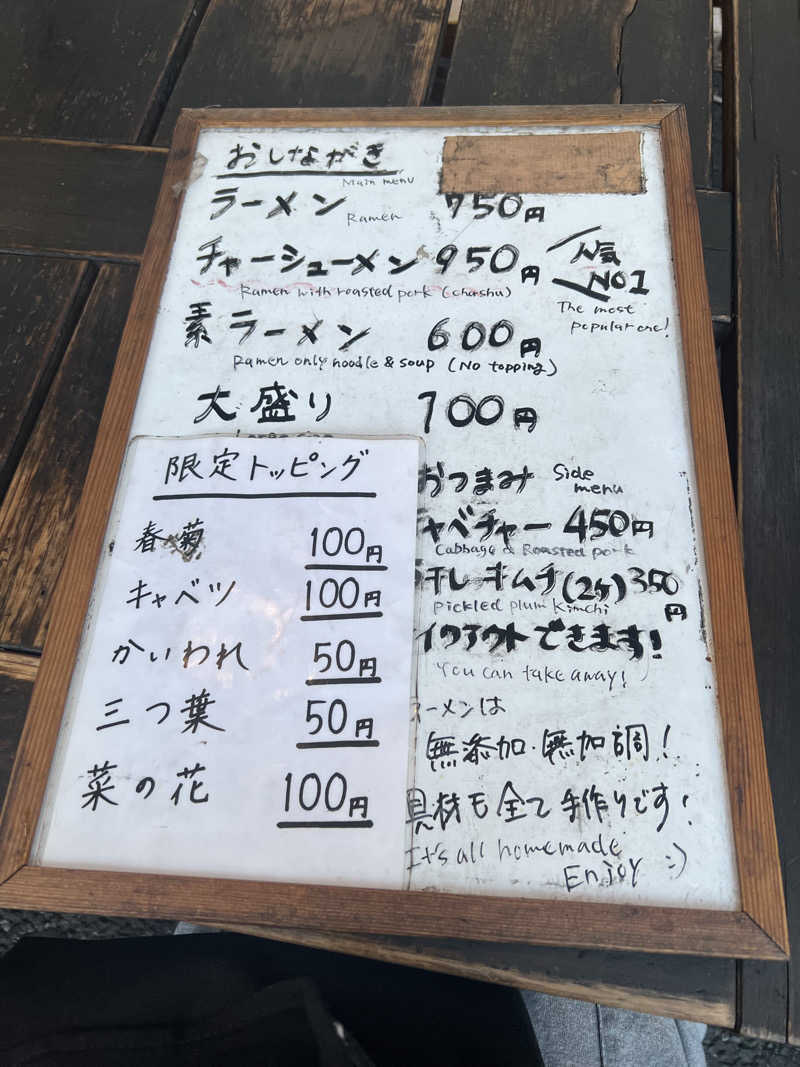 おしながき
Main menu
ラーメン 750円
Ramen
チャーシューメン 950円
Ramen with roasted pork (chashu)
人気
NO1
The most
popular one!
素ラーメン 600円
Ramen only noodle & soup (No topping)
大盛り 100円
限定トッピング
春菊 100円
キャベツ 100円
かいわれ 50円
三つ葉 50円
菜の花 100円
おつまみ Side
menu
ャベチャー 450円
Cabbage & Roasted pork
干しキムチ(2ケ)350円
Pickled plum Kimchi
イクアウトできます!
You can take away!
ーメンは
無添加・無加調!
具材も全て手作りです!
It's all homemade
Enjoy :)